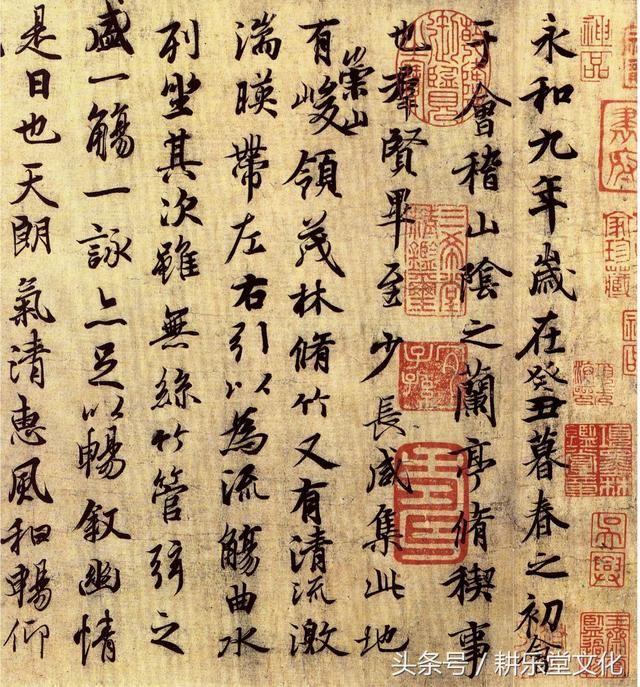 神品
家珍藏
吳興
永和九年歲在癸丑暮春之初會
于會稽山陰之蘭亭脩稧事
也羣賢畢至少長咸集此地
有崇山峻領茂林脩竹又有清流激
湍暎帶左右引以為流觴曲水
列坐其次雖無絲竹管弦之
盛一觴一詠亦足以暢叙幽情
是日也天朗氣清惠風和暢仰
三希堂
精鑑璽
宜子孫
头条号 / 耕乐堂文化